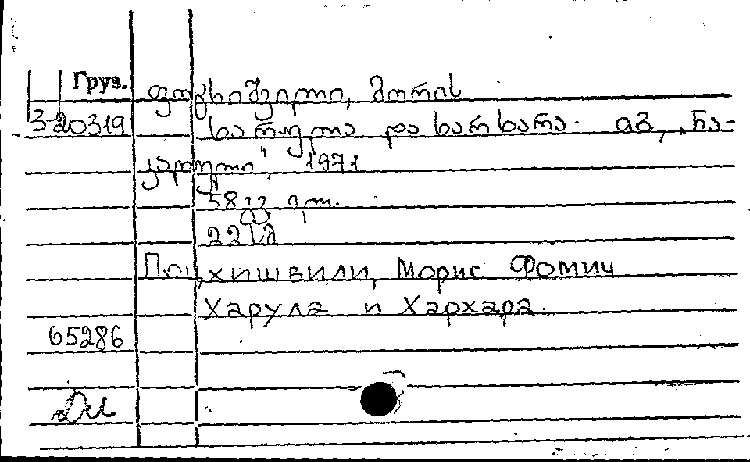 Груз. ფოცხიშვილი, მორის
3-20319 ხარულა და ხარხარა. თბ., „ნა-
კადული“, 1971
58 გვ.
22 სმ
Поцхишвили, Морис Фомич
Харула и Хархара.
65286